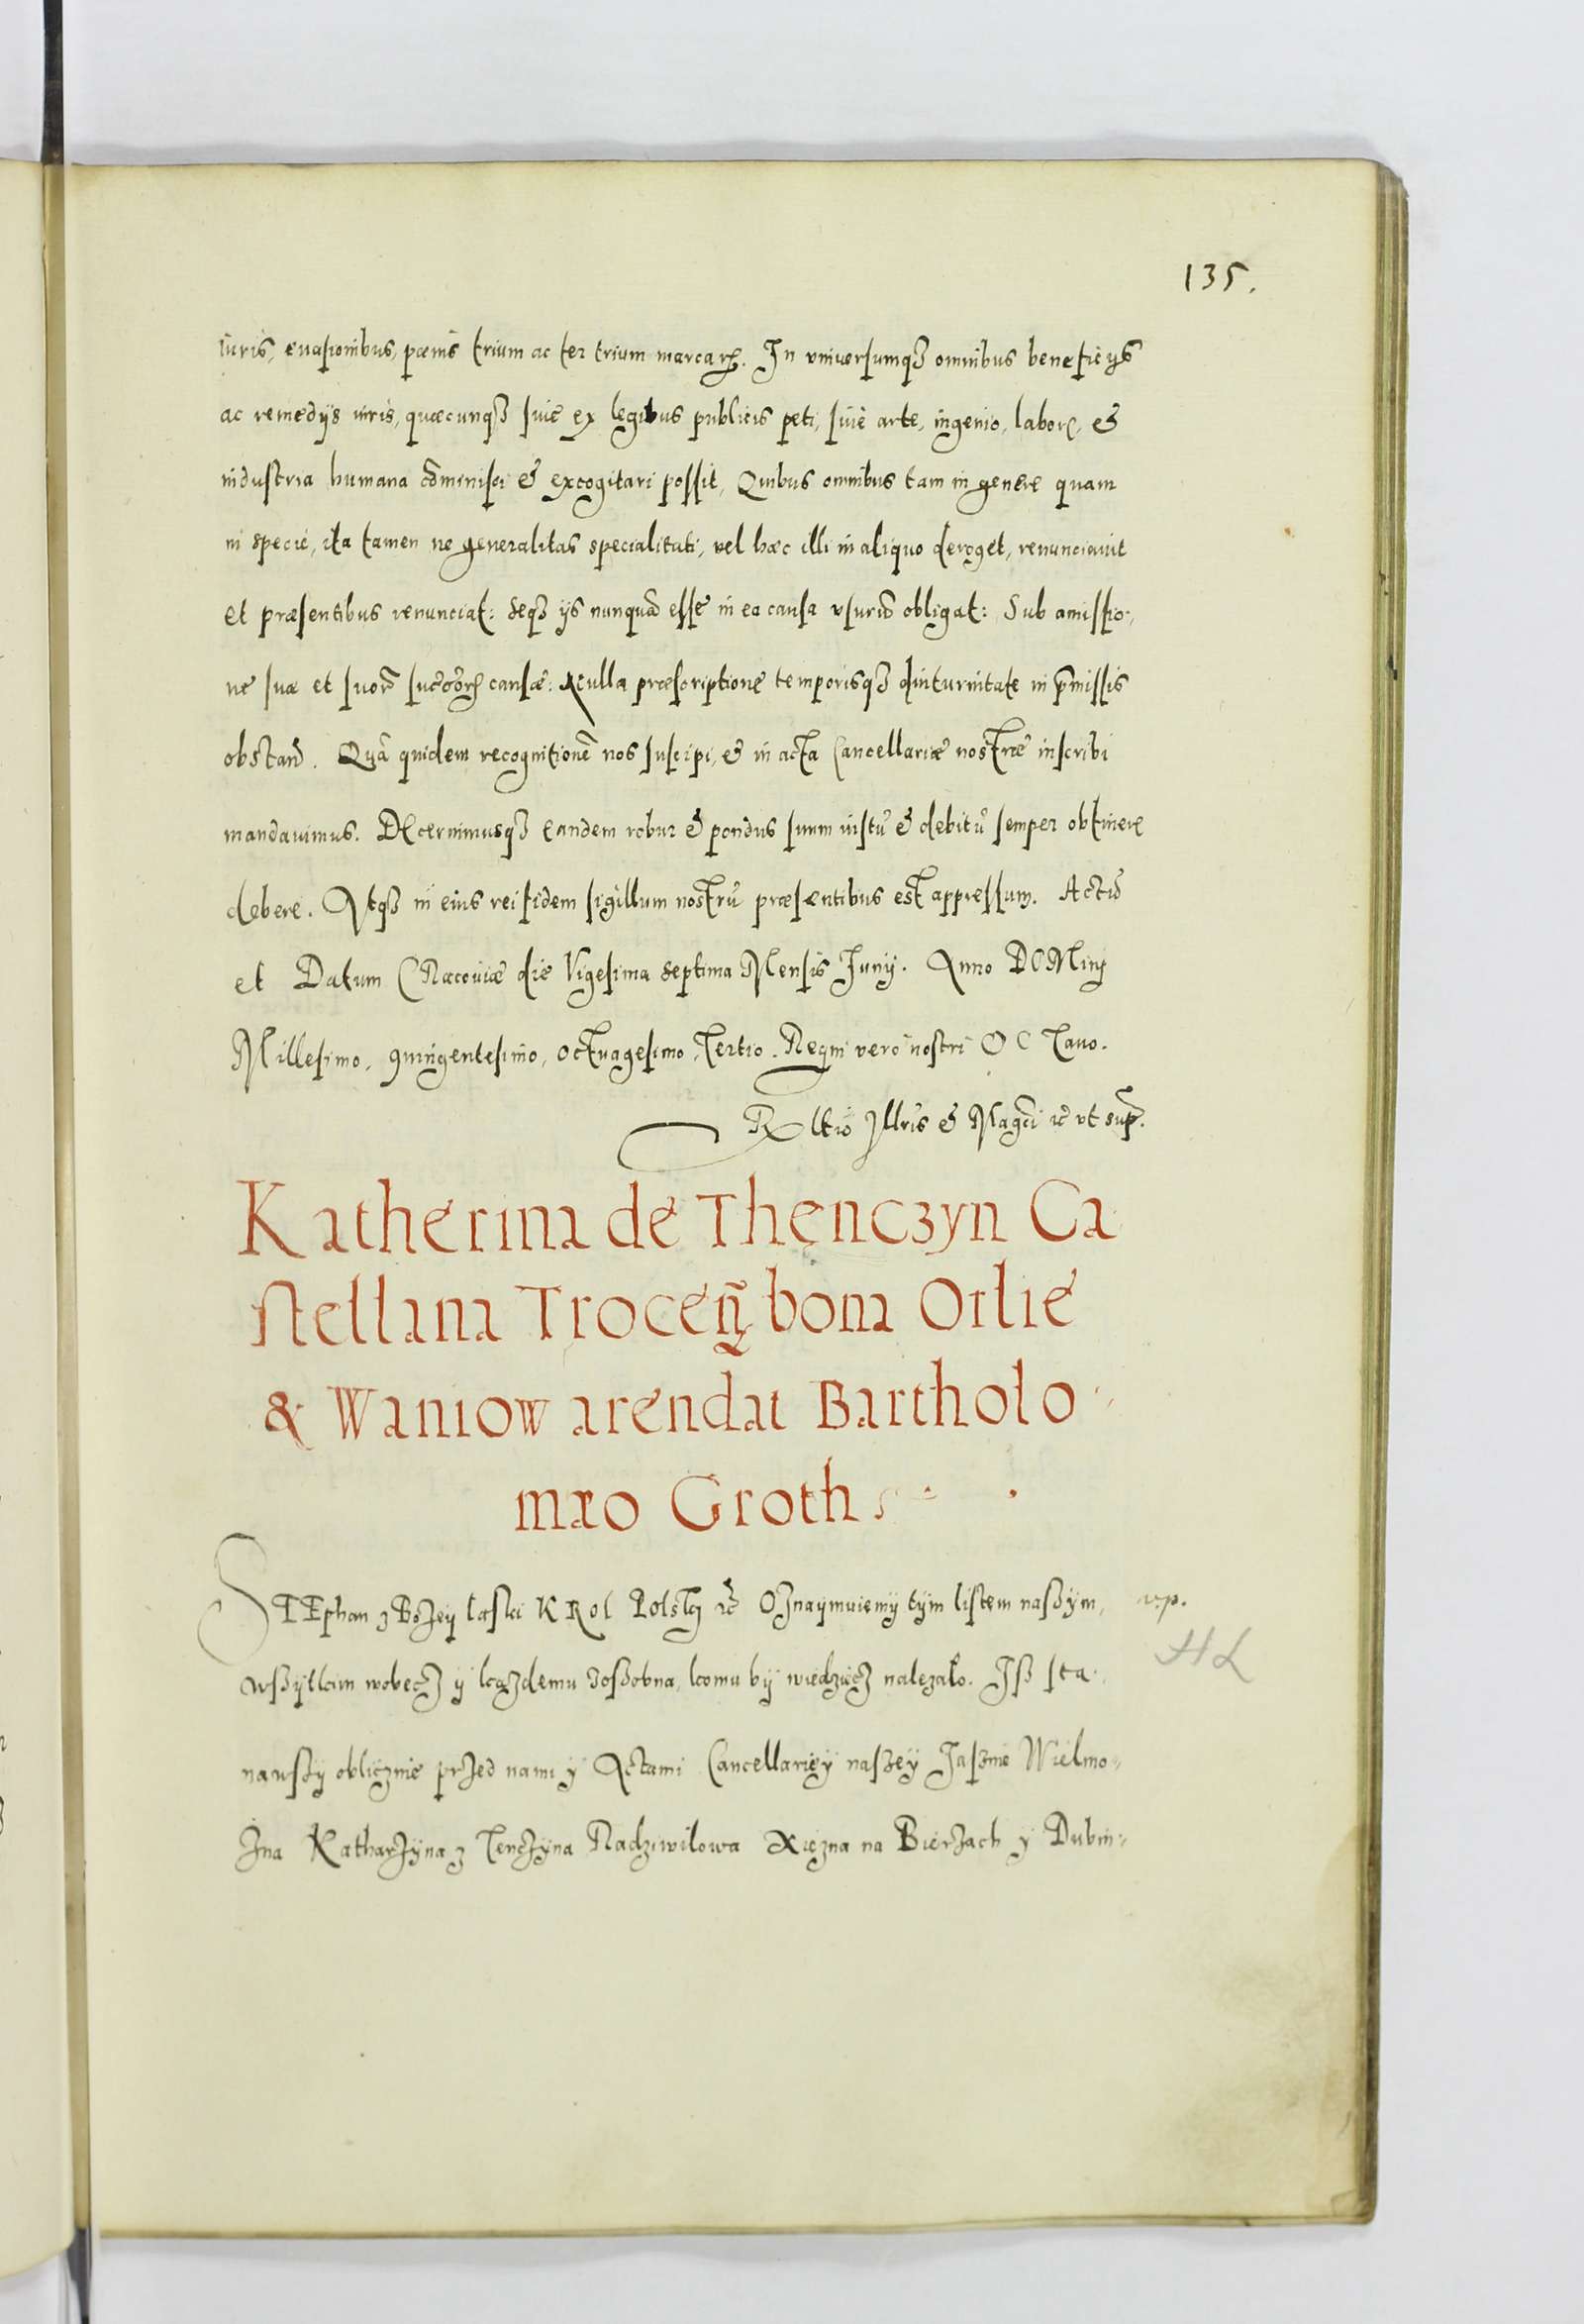 135.
iuris, euasionibus, pœnis trium ac ter trium marcarꝝ. In vniuersumqꝫ omnibus beneficijs
ac remedijs iuris, quæcunqꝫ siue ex legibus publicis peti, siue arte, ingenio, labore, &
industria humana cōminisci & excogitari possit, Quibus omnibus tam in genere quam
in specie, ita tamen ne generalitas specialitati, vel hæc illi in aliquo deroget, renunciauit
et præsentibus renunciat: seqꝫ ijs nunquā esse in ea causa vsurū obligat: Sub amissio-
ne suæ et suorū succōrꝝ causæ. Nulla præscriptione temporisqꝫ diuturnitate in p̄missis
obstan̄. Quā quidem recognitionē nos suscipi, & in acta Cancellariæ nostræ inscribi
mandauimus. DEcernimusqꝫ eandem robur & pondus suum iustū & debitū semper obtinere
debere. Atqꝫ in eius rei fidem sigillum nostrū præsentibus est appressum. Actū
et Datum CRacouiæ die Vigesima septima Mensis Junij. Anno DOMinj
Millesimo, quingentesimo, octuagesimo, Tertio. Regni vero nostri OCTauo.
Rltio Jllris & Magci ec vt sup̄.
Katherina de Thenczyn Ca
stellana Trocen̄ bona Orlie
& Waniow arendat Bartholo-
mæo Groth
STEphan z Bożey łaski KRol Polsky ec Oznaymuiemy tym listem naszym,
wszyttkim wobecz y kazdemu zosobna, komu by wiedziecz nalezało. Jsz sta-
nawszy oblicznie przed nami y Actami Cancellariey naszey Jaszne Wielmo-
żna Katharzyna z Tenczyna Radziwilowa Xiężna na Bierzach y Dubin-
v.p.
HL